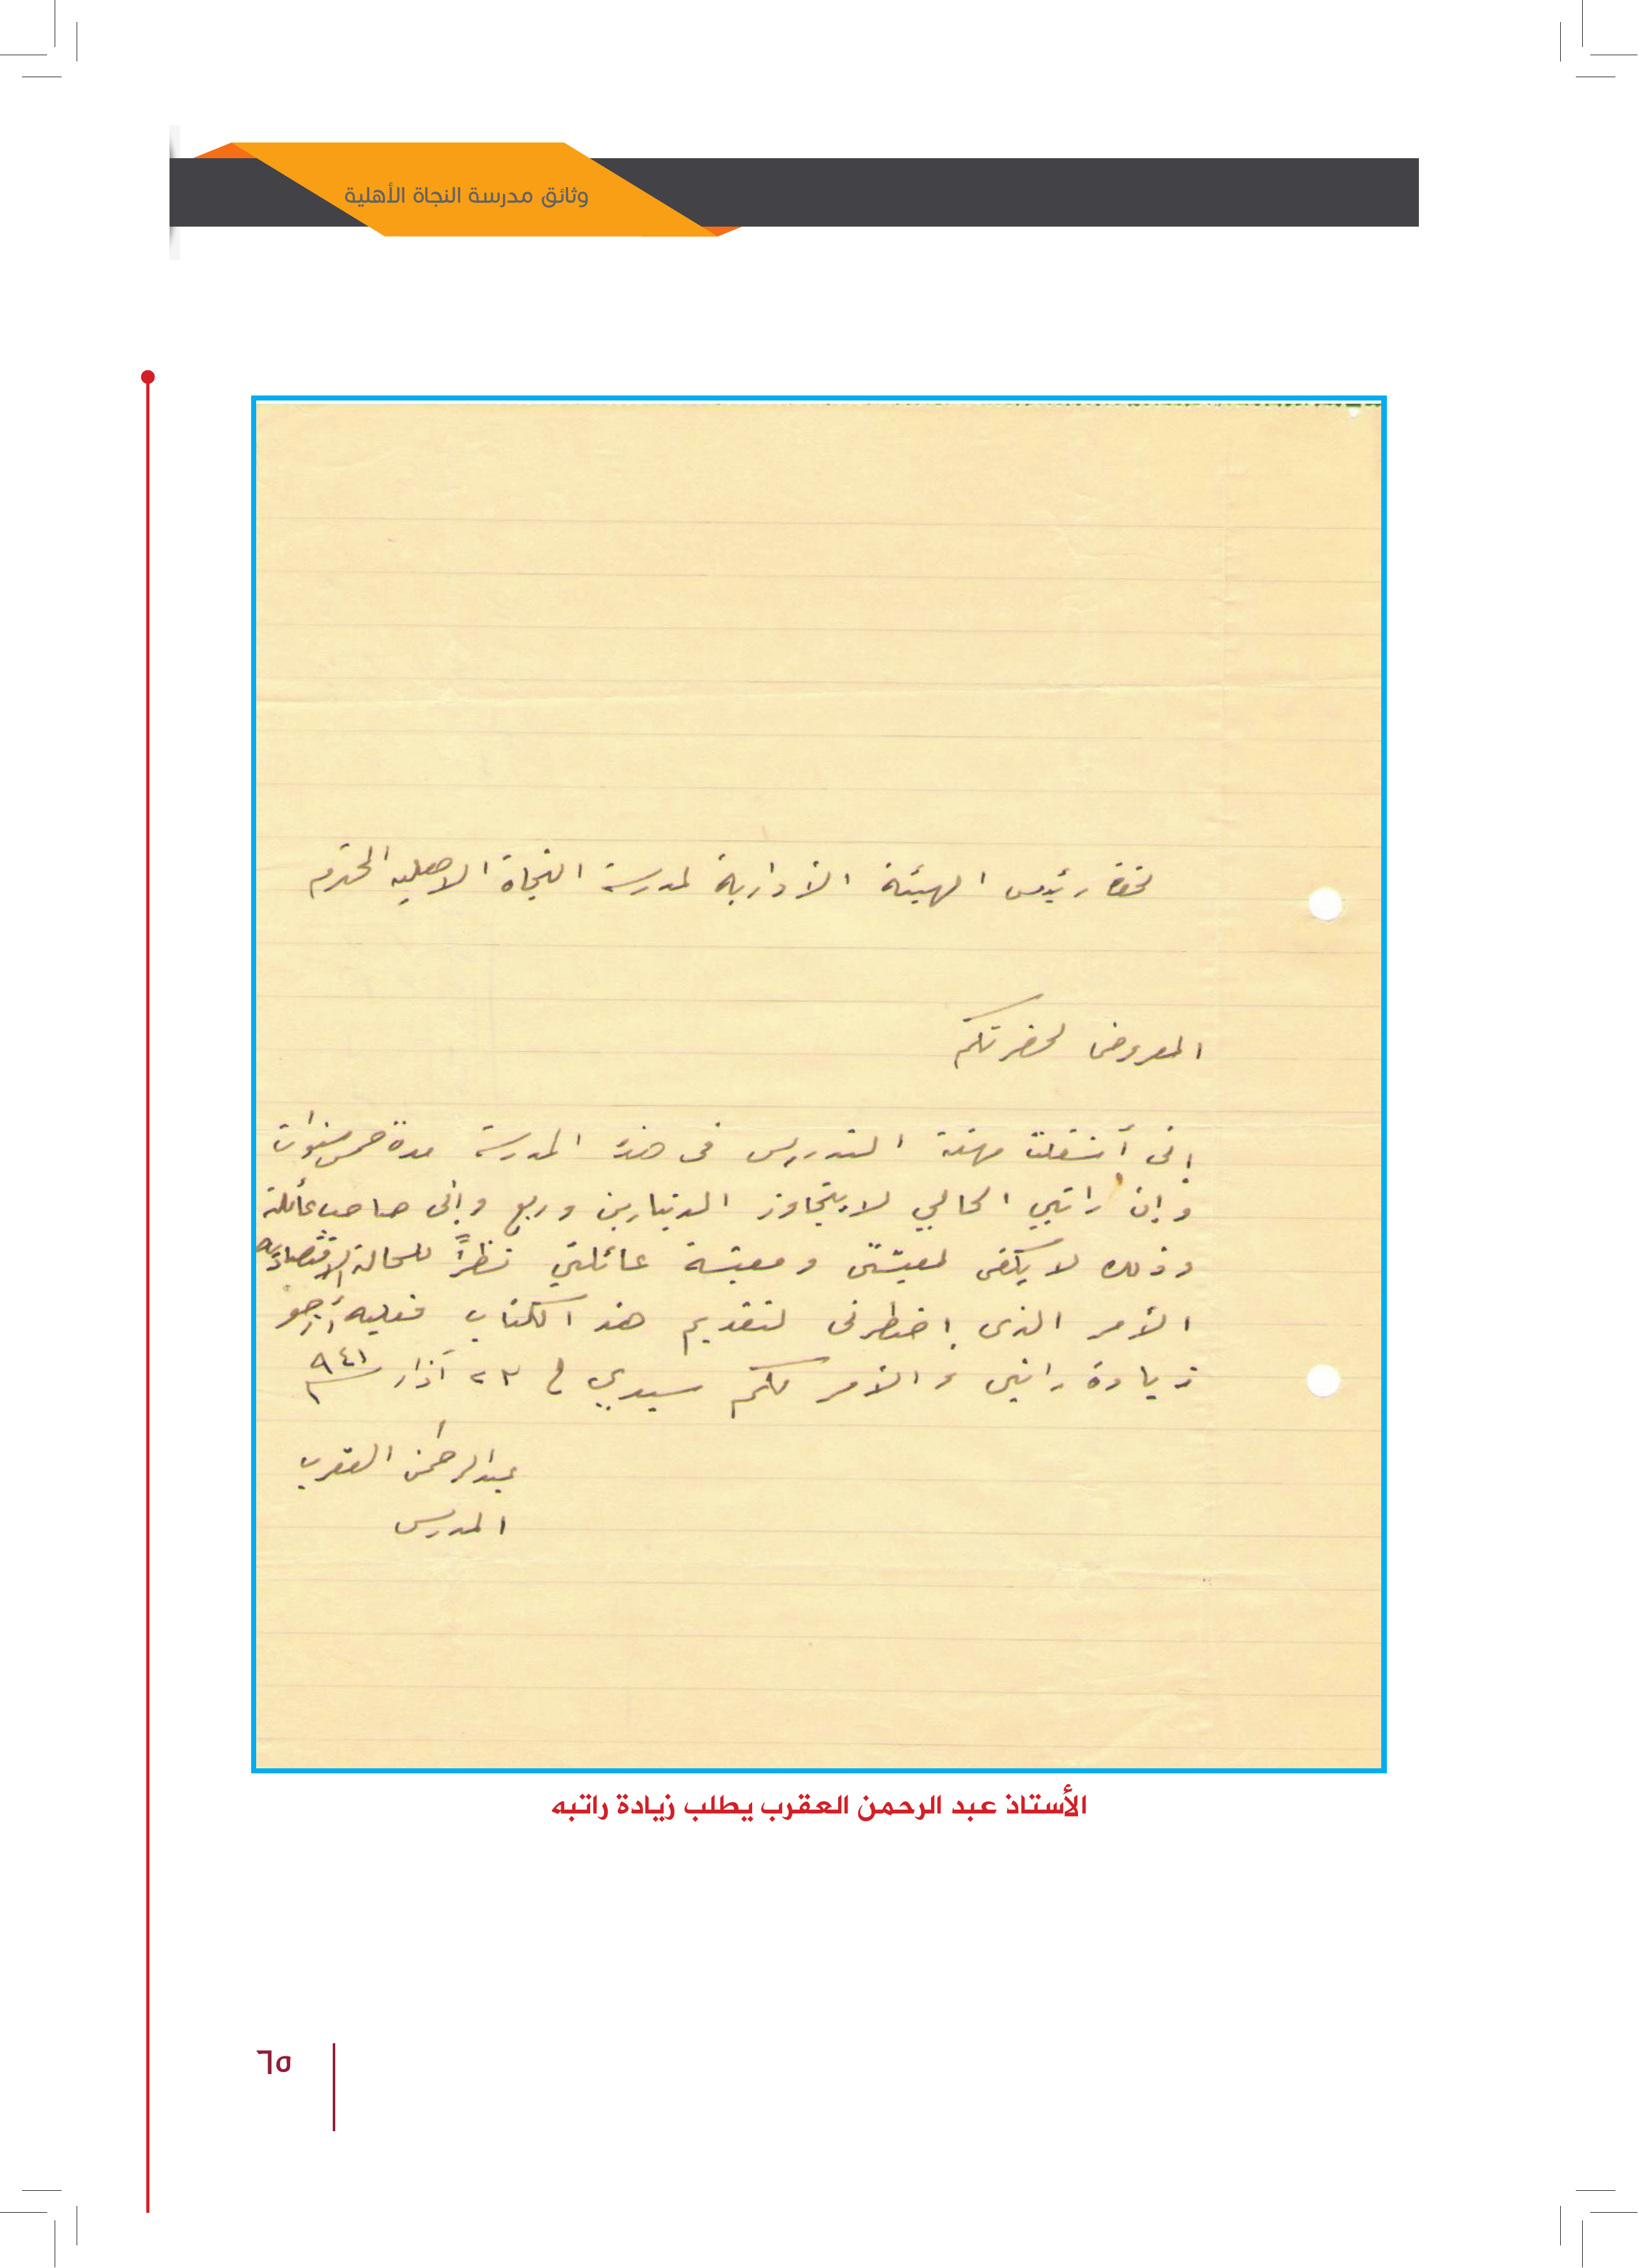 وثائق مدرسة النجاة الأهلية
رئيس الهيئة الأدارية لمدرسة النجاة الاهليه المحترم
المعروض لحضرتكم
إني أشغلت مهنة التدريس في هذه المدرسة مدة خمس سنوات
وإن راتبي الحالي لا يتجاوز الدينارين وربع وإني صاحب عائلة
وذلك لا يكفي لمعيشتي ومعيشة عائلتي نظراً للحالة الاقتصاديه
الأمر الذي إضطرني لتقديم هذا الكتاب فعليه أرجو
زيادة راتبي والأمر لكم سيدي ٢٣ آذار ٩٤١
عبدالرحمن العقرب
المدرس
الأستاذ عبد الرحمن العقرب يطلب زيادة راتبه
٦٥